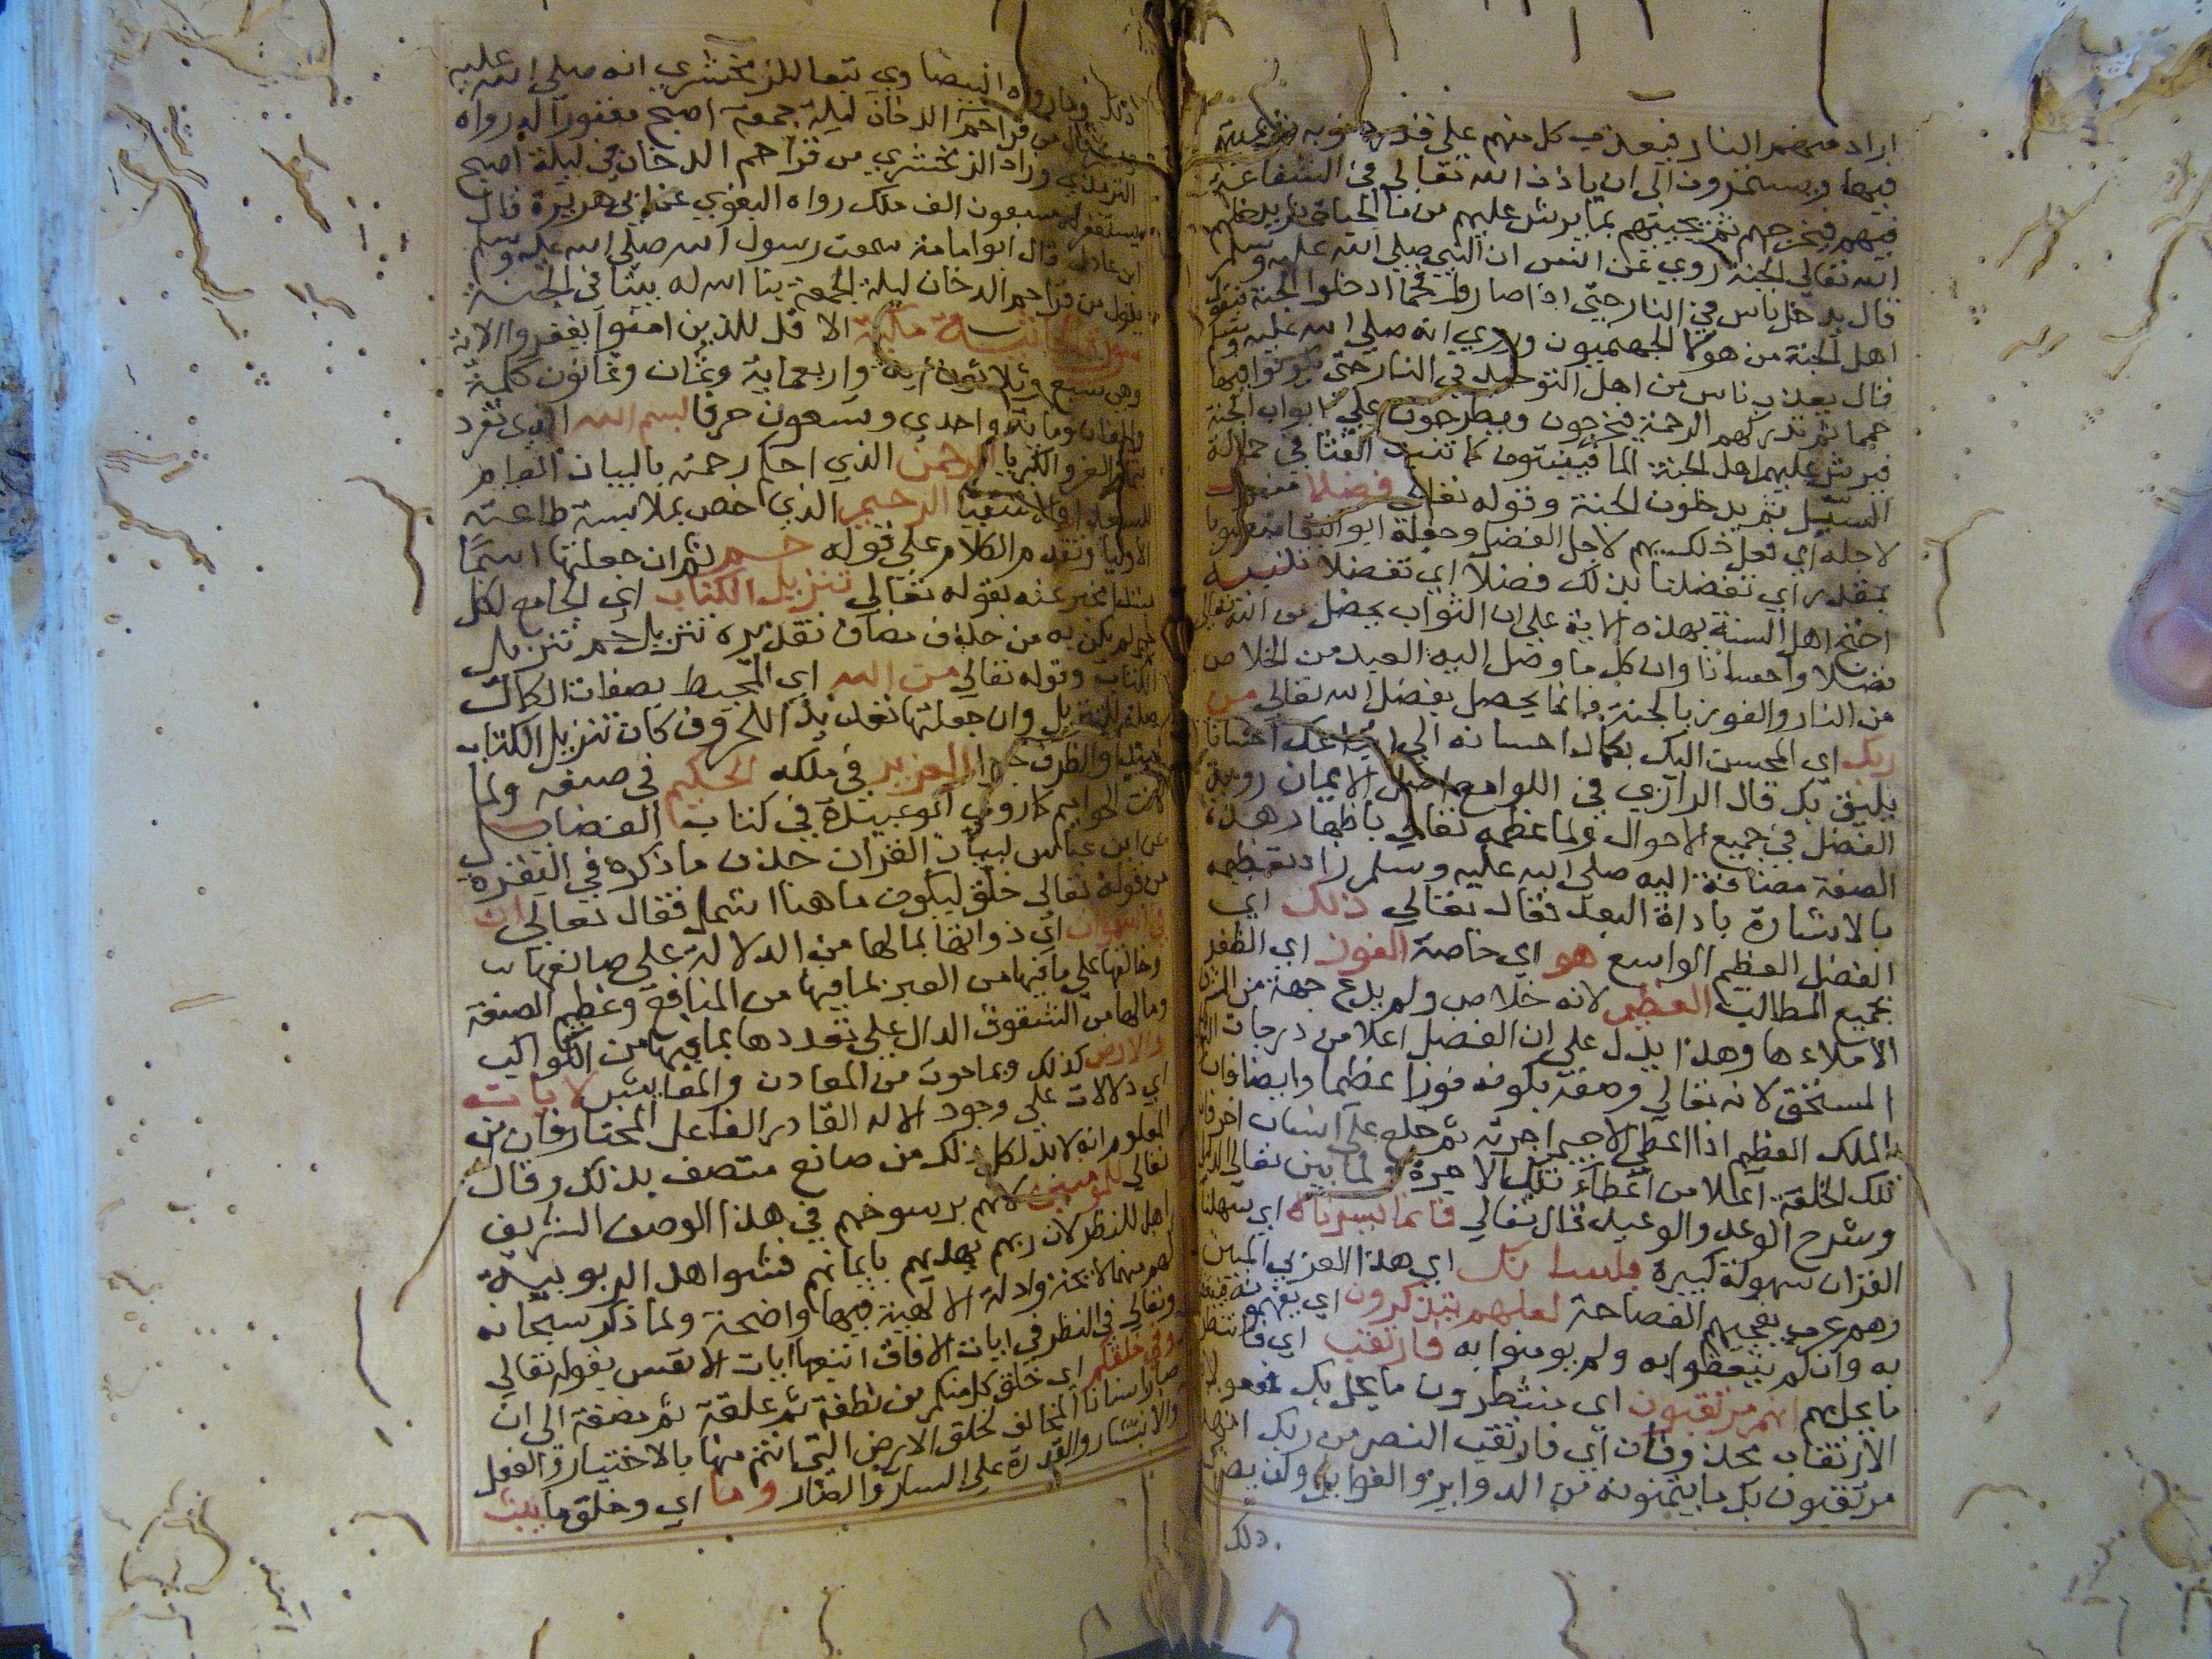 اراد منهم النار فيعذب كل منهم على قدر ذنوبه
فيها ويستمرون الى ان ياذن الله تعالى في الشفاعة
فيهم فيخرجهم ثم يحييهم بما يرش عليهم من ما الحياة ثم يدخلهم
الله تعالى الجنة روي عن انس ان النبي صلى الله عليه وسلم
قال يدخل ناس في النار حتى اذا صاروا فحما ادخلوا الجنة فيقول
اهل الجنة من هولا الجهنميون وروي انه صلى الله عليه وسلم
قال يعذب ناس من اهل التوحيد في النار حتى يكونوا فيها
حمما ثم تدركهم الرحمة فيخرجون ويطرحون على ابواب الجنة
فيرش عليهم اهل الجنة الما فينبتون كما تنبت الغثا في حمالة
السيل ثم يدخلون الجنة وقوله تعالى فضلا
لاجله اي فعل ذلك بهم لاجل الفضل وجعله ابو البقا منصوبا
بمقدر اي تفضلنا بذلك فضلا اي تفضلا تنبيه
احتج اهل السنة بهذه الاية على ان الثواب يحصل من الله تعالى
فضلا واحسانا وان كل ما وصل اليه العبد من الخلاص
من النار والفوز بالجنة فانما يحصل بفضل الله تعالى من
ربك اي المحسن اليك بكمال احسانه الى اتباعك احسانا
يليق بك قال الرازي في اللوامع اصل الايمان روية
الفضل في جميع الاحوال ولما عظمه تعالى باظهار هذه
الصفة مضافة اليه صلى الله عليه وسلم زاد تعظيمه
بالاشارة باداة البعد فقال تعالى ذلك اي
الفضل العظيم الواسع هو اي خاصة الفوز اي الظفر
بجميع المطالب العظيم لانه خلاص ولم يدع جهة من الشر
الا ملاءها وهذا يدل على ان الفضل اعلا من درجات الثواب
المستحق لانه تعالى وصفه بكونه فوزا عظيما وايضا فان
الملك العظيم اذا اعطى الاجير اجرته ثم خلع على انسان اخر فان
تلك الخلعة اعلا من اعطاء تلك الاجرة ولما بين تعالى الدلائل
وشرح الوعد والوعيد قال تعالى فانما يسرناه اي سهلنا
القران سهولة كبيرة بلسانك اي هذا العربي المبين
وهم عرب يعجبهم الفصاحة لعلهم يتذكرون اي يفهمونه فيتعظون
به وان لم يتعظوا به ولم يومنوا به فارتقب اي فانتظر
ما يحل بهم انهم مرتقبون اي منتظرون ما يحل بك فمفعولا
الارتقاب محذوفان اي فارتقب النصر من ربك انهم
مرتقبون بك ما يتمنونه من الدواير والغوايل ولن يضر
ذلك
ذلك وما رواه البيضاوي تبعا للزمخشري انه صلى الله عليه
وسلم قال من قرا حم الدخان ليلة جمعة اصبح مغفورا له رواه
الترمذي وزاد الزمخشري من قرا حم الدخان في ليلة اصبح
يستغفر له سبعون الف ملك رواه البغوي عن ابي هريرة قال
ابن عادل قال ابو امامة سمعت رسول الله صلى الله عليه وسلم
يقول من قرا حم الدخان ليلة الجمعة بنا الله له بيتا في الجنة
سورة الجاثية مكية الا قل للذين امنوا يغفروا الاية
وهي سبع وثلاثون اية واربعماية وثمان وثمانون كلمة
والفان وماية واحدى وتسعون حرفا بسم الله الذي تفرد
بتمام العز والكبريا الرحمن الذي احكم رحمته بالبيان العام
للسعدا والاشقيا الرحيم الذي اخص بملابسة طاعته
الاوليا وتقدم الكلام على قوله حم ثم ان جعلتها اسما
مبتدا مخبر عنه بقوله تعالى تنزيل الكتاب اي الجامع لكل
خير لم يكن به من حذف مضاف تقديره تنزيل حم تنزيل
الكتاب وقوله تعالى من الله اي المحيط بصفات الكمال
صلة للتنزيل وان جعلتها تعديدا للحروف كان تنزيل الكتاب
مبتدا والظرف خبرا العزيز في ملكه الحكيم في صنعه ولما
كانت الحواميم كما روى ابو عبيدة في كتاب الفضايل
عن ابن عباس لباب القران حذف ما ذكره في البقرة
من قوله تعالى خلق ليكون ما هنا اشمل فقال تعالى ان
في السموات اي ذواتها بما لها من الدلالة على صانعها
وخالقها على ما فيها من العبر بما فيها من المنافع وعظيم الصنعة
وما لها من الشفوف الدال على تعددها بما فيها من الكواكب
والارض كذلك وبما حوت من المعادن والمعايش لايات
اي دلالات على وجود الاله القادر الفاعل المختار فان من
المعلوم انه لا بد لكل ذلك من صانع متصف بذلك وقال
تعالى للمومنين لانهم برسوخهم في هذا الوصف الشريف
اهل للنظر لان ربهم يهديهم بايمانهم فشواهد الربوبية
لهم منهما لايحة وادلة الالهية فيها واضحة ولما ذكر سبحانه
وتعالى في النظر في ايات الافاق اتبعها ايات الانفس بقوله تعالى
وفي خلقكم اي خلق كل منكم من نطفة ثم علقة ثم مضغة الى ان
صار انسانا المخالف لخلق الارض التي انتم منها بالاختيار والعقل
والانتشار والقدرة على السار والضار وما اي وخلق ما يبث